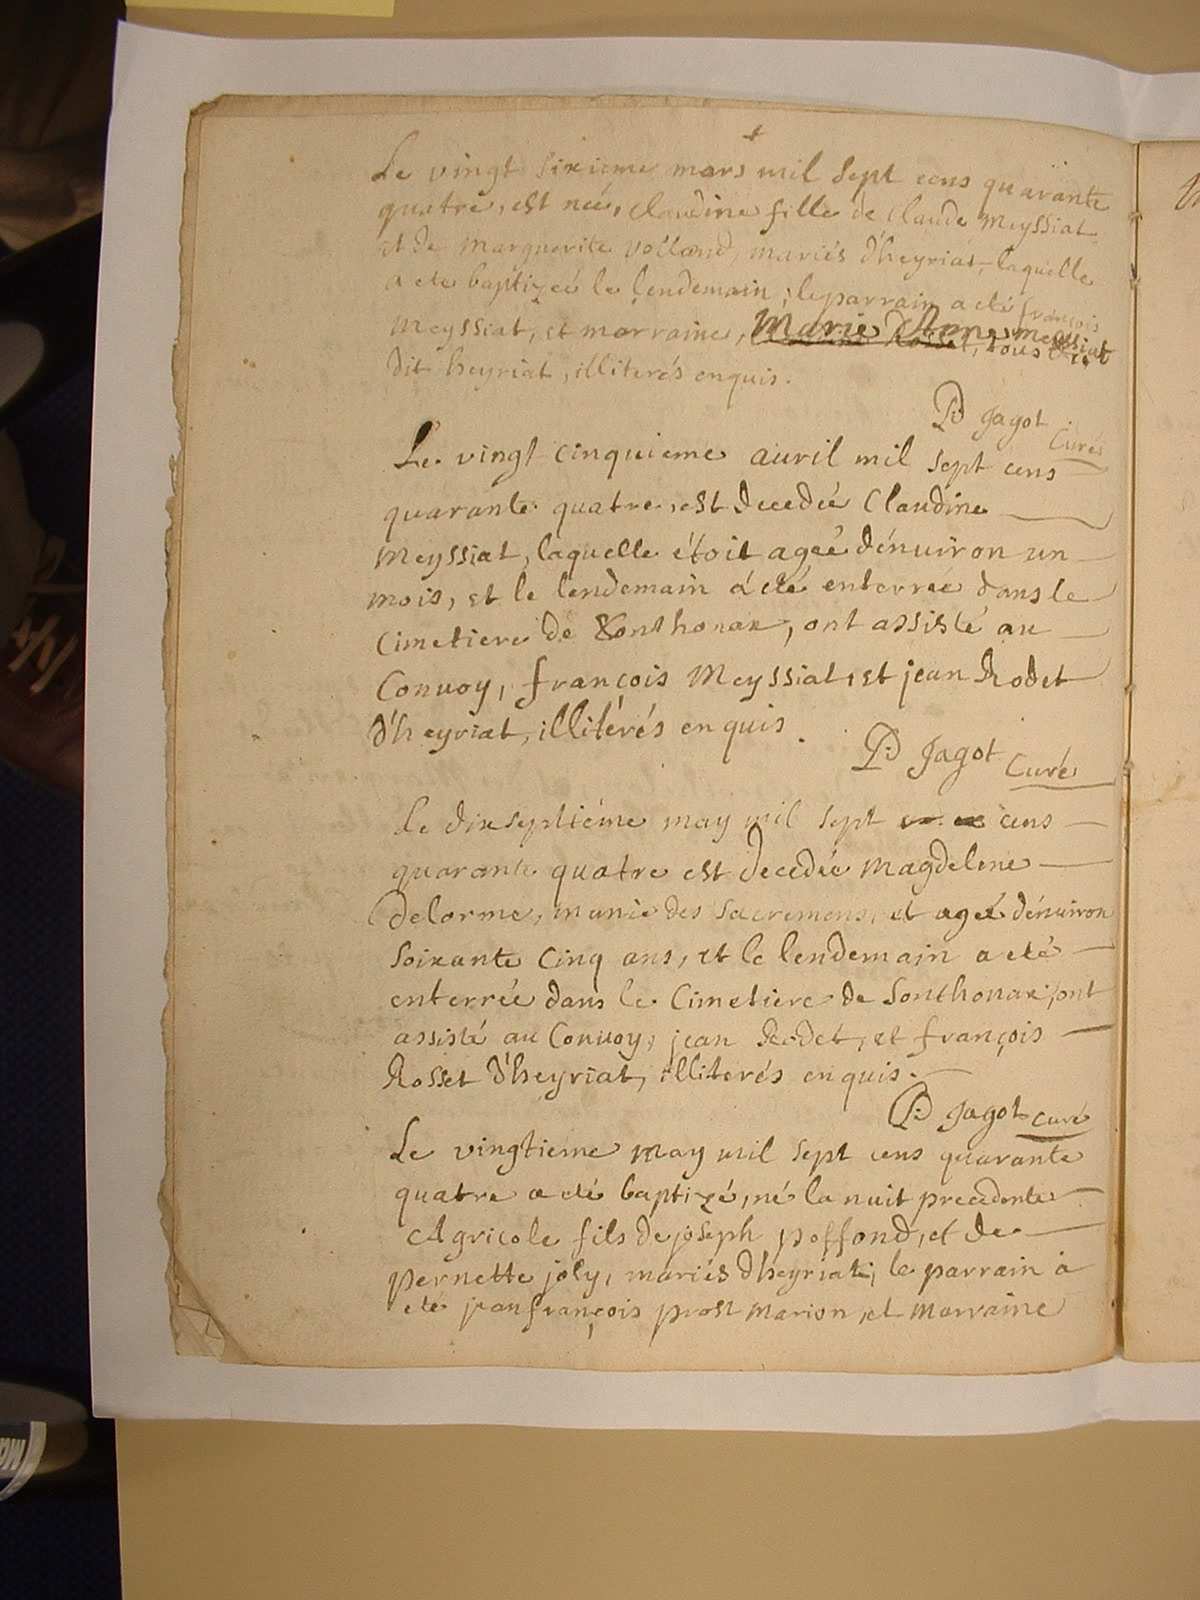 Le vingt sixieme mars mil sept cens quarante
quatre, est neé, claudine fille de claude meyssiat
et de marguerite volland, mariés d'heyriat, laquelle
a ete baptizeé le lendemain, le parrain a eté françois
meyssiat, et marraine, Marie Anne meyssiat
tous du
dit heyriat, illiterés enquis.
P: Jagot Curé
Le vingt cinquieme auril mil sept cens
quarante quatre, est decedeé Claudine
Meyssiat, laquelle étoit ageé dénuiron un
mois, et le lendemain a été enterreé dans le
Cimetiere de Sonthonax, ont assisté au
Conuoy, françois Meyssiat, et jean Rodet
d'heyriat, illitérés enquis.
P: Jagot Curé
Le dixseptiéme may mil sept cens
quarante quatre est decedeé magdelene
Delorme, munie des sacremens, et ageé dénuiron
soixante cinq ans, et le lendemain a eté
enterrée dans le Cimetiere de Sonthonax, ont
assisté au Conuoy, jean Rodet, et françois
Rosset d'heyriat, illiterés enquis.
P: Jagot curé
Le vingtieme may mil sept cens quarante
quatre a eté baptizé, né la nuit precedente
Agricole fils de joseph poffond, et de
pernette joly, mariés d'heyriat, le parrain a
eté jean françois prost marion, et marraine